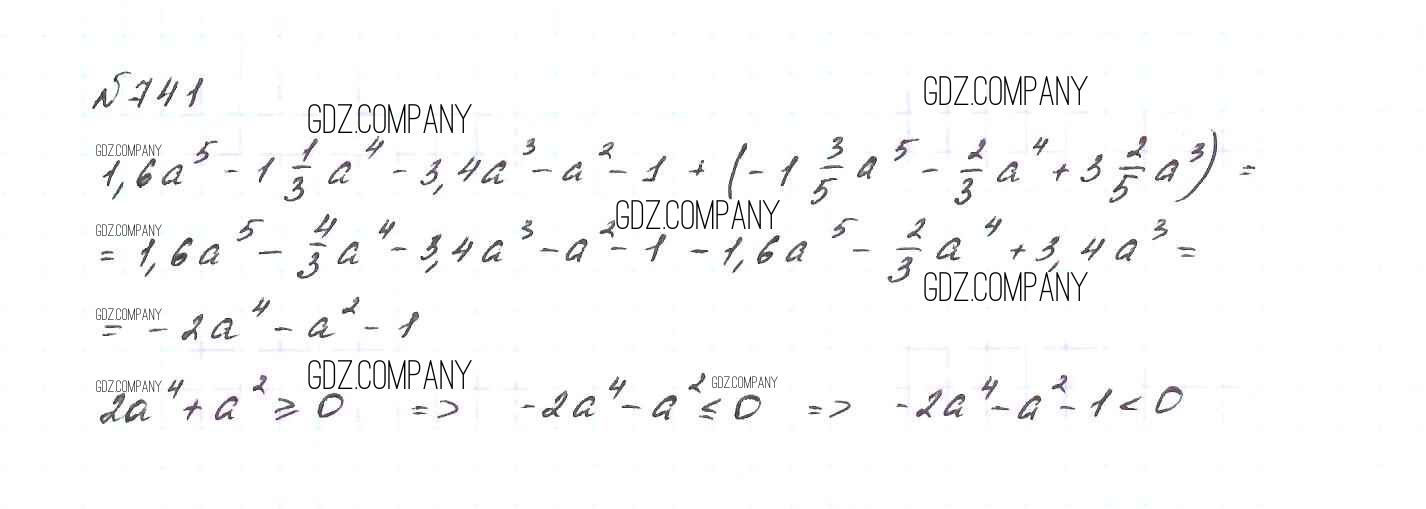 № 741
GDZ.COMPANY GDZ.COMPANY
GDZ.COMPANY
1,6a⁵ - 1 1/3 a⁴ - 3,4a³ - a² - 1 + (-1 3/5 a⁵ - 2/3 a⁴ + 3 2/5 a³) =
GDZ.COMPANY GDZ.COMPANY
= 1,6a⁵ - 4/3 a⁴ - 3,4a³ - a² - 1 - 1,6a⁵ - 2/3 a⁴ + 3,4a³ =
GDZ.COMPANY
GDZ.COMPANY
= -2a⁴ - a² - 1
GDZ.COMPANY
GDZ.COMPANY GDZ.COMPANY
2a⁴ + a² ⩾ 0 => -2a⁴ - a² ≤ 0 => -2a⁴ - a² - 1 < 0